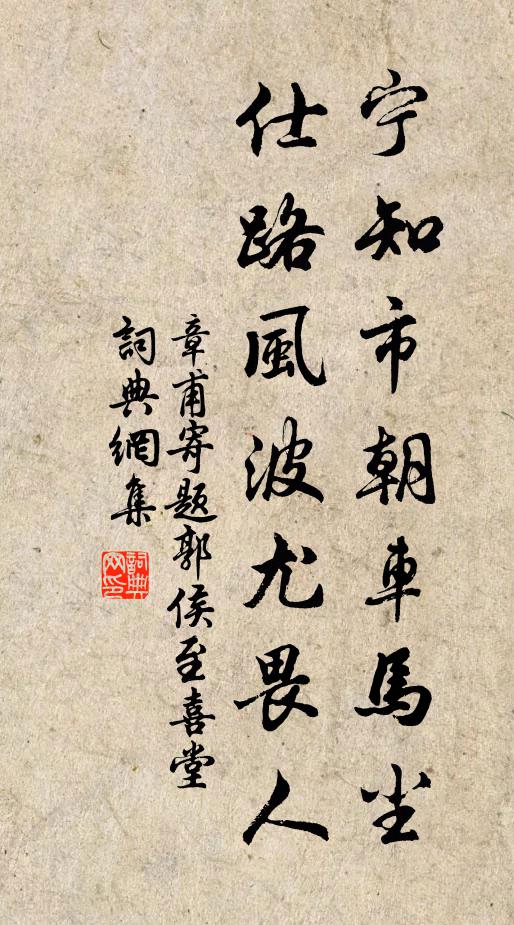 宁知市朝車馬尘
仕路風波尤畏人
章甫寄题郭侯至喜堂
詞典網集
詞典网印